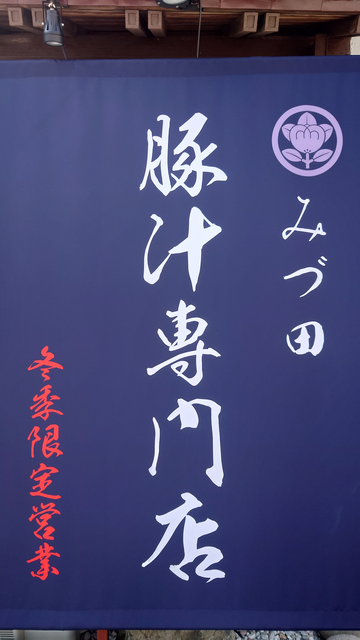 みづ田
豚汁専門店
冬季限定営業